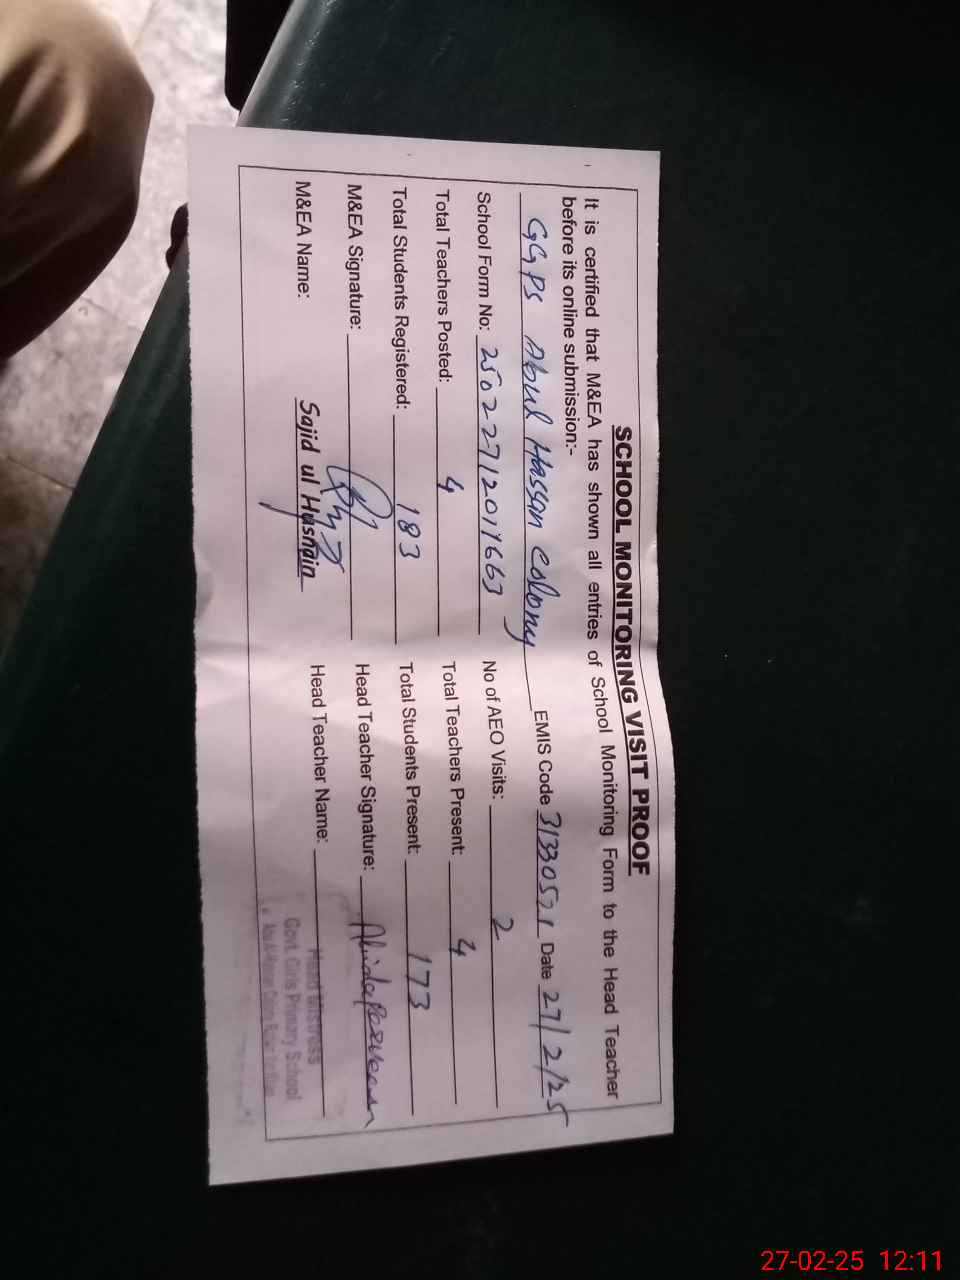 SCHOOL MONITORING VISIT PROOF
It is certified that M&EA has shown all entries of School Monitoring Form to the Head Teacher
before its online submission:-
GGPS Abul Hassan Colony EMIS Code 31330571 Date 27/2/25
School Form No: No of AEO Visits: 2
Total Teachers Posted: 4 Total Teachers Present: 4
Total Students Registered: 183 Total Students Present: 173
M&EA Signature: Head Teacher Signature: Abida Parveen
M&EA Name: Sajid ul Hasnain Head Teacher Name:
Head Mistress
Govt. Girls Primary School
27-02-25 12:11